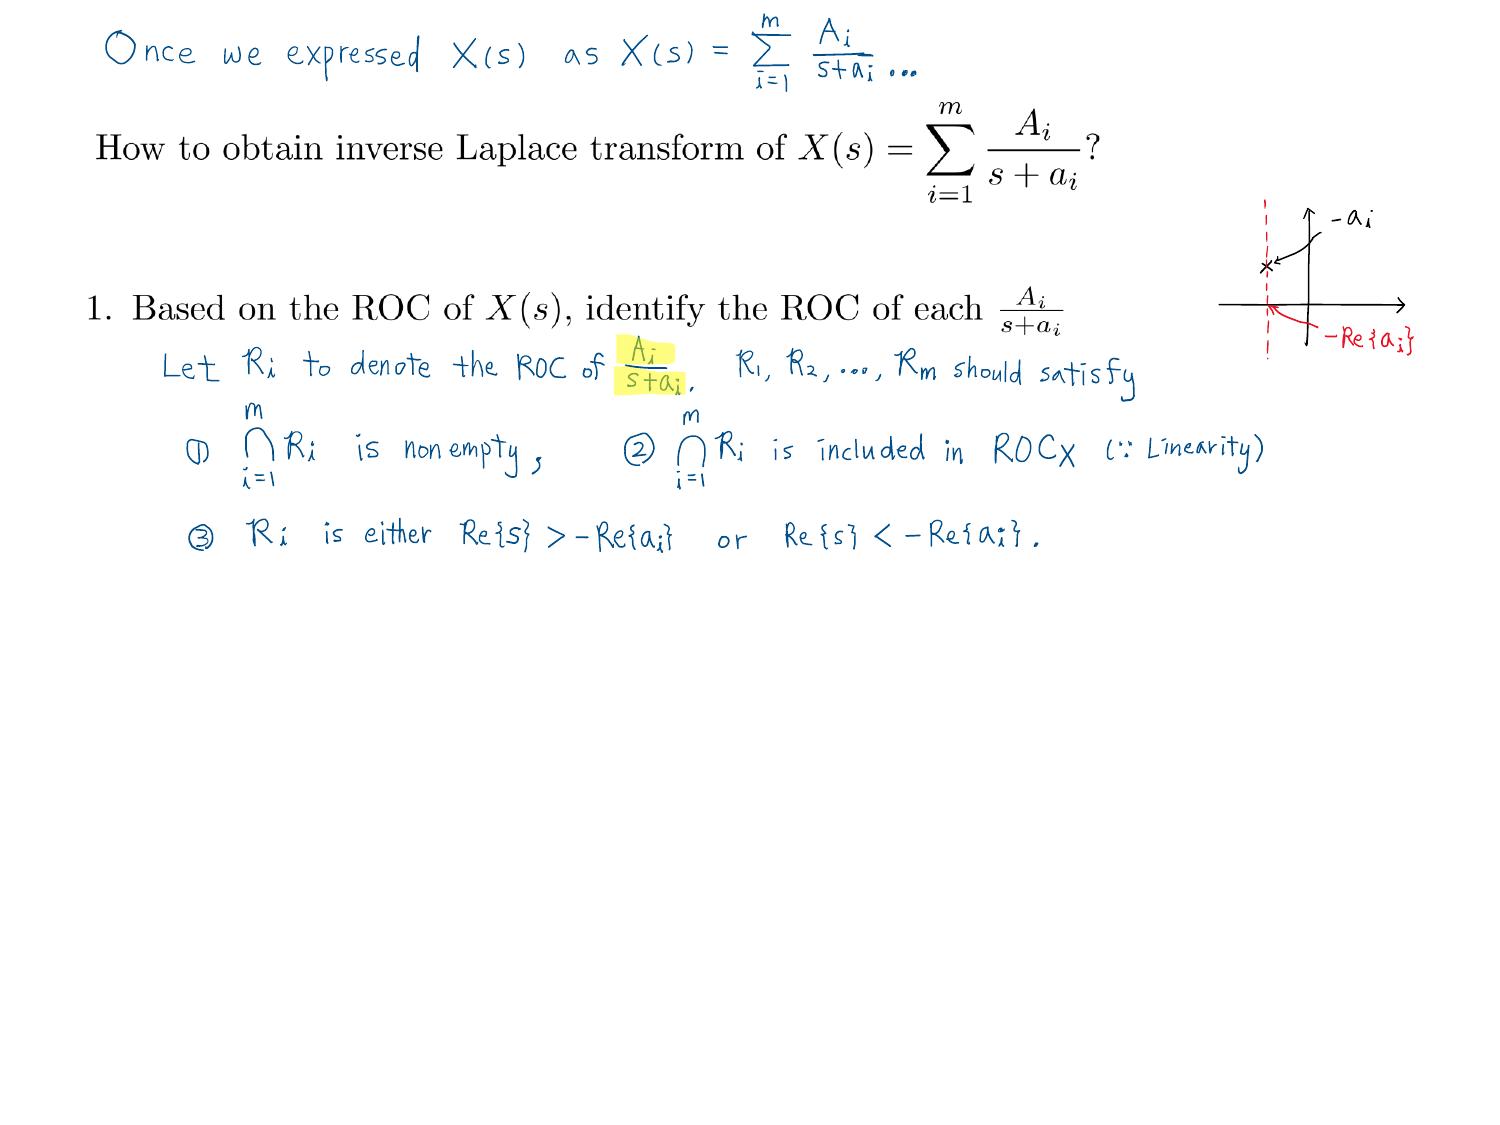 Once we expressed X(s) as X(s) = \sum_{i=1}^{m} \frac{A_i}{s+a_i} ...
How to obtain inverse Laplace transform of X(s) = \sum_{i=1}^{m} \frac{A_i}{s+a_i}?
-a_i
1. Based on the ROC of X(s), identify the ROC of each \frac{A_i}{s+a_i}
-Re{a_i}
Let R_i to denote the ROC of \frac{A_i}{s+a_i}. R_1, R_2, ..., R_m should satisfy
① \bigcap_{i=1}^{m} R_i is nonempty, ② \bigcap_{i=1}^{m} R_i is included in ROC_X (∵ Linearity)
③ R_i is either Re{s} > -Re{a_i} or Re{s} < -Re{a_i}.